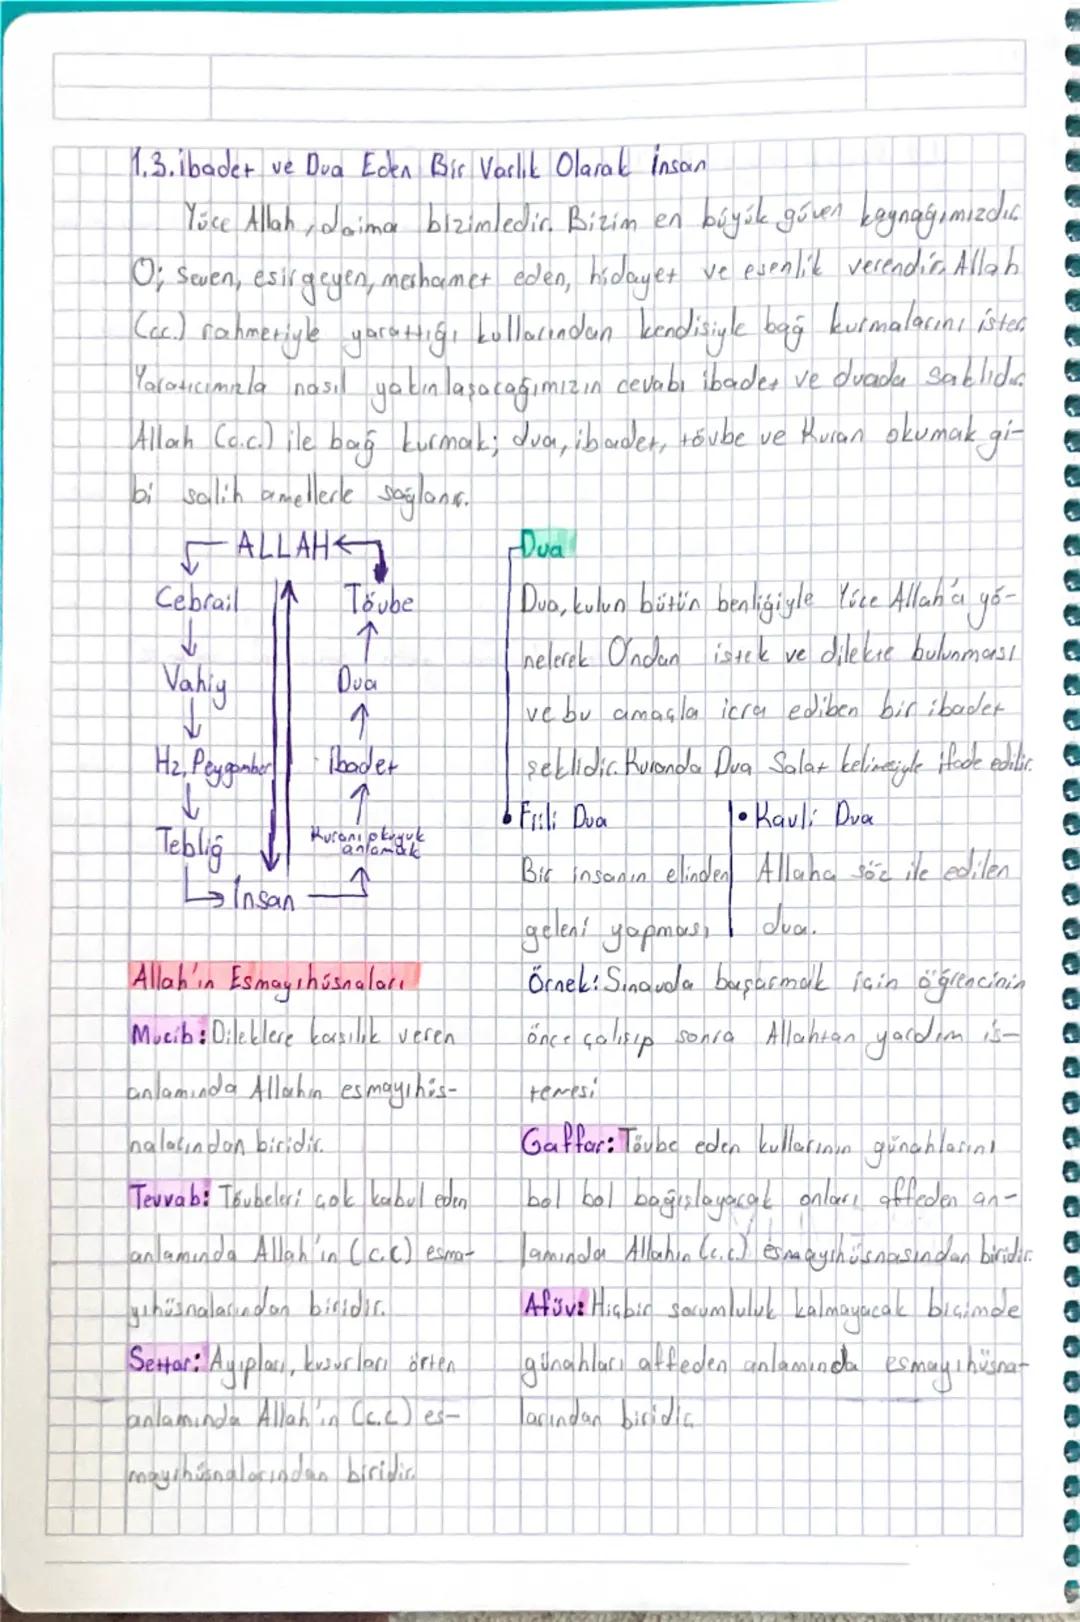 1.3. ibadet ve Dua Eden Bir Varlık Olarak İnsan
Yüce Allah, daima bizimledir. Bizim en büyük güven kaynağımızdır.
O; Seven, esirgeyen, merhamet eden, hidayet ve esenlik verendir. Allah
(c.c.) rahmetiyle yarattığı kullarından kendisiyle bağ kurmalarını ister.
Yaratıcımızla nasıl yakınlaşacağımızın cevabı ibadet ve duada saklıdır.
Allah (c.c.) ile bağ kurmak; dua, ibadet, tövbe ve Kuran okumak gi-
bi salih amellerle sağlanır.
ALLAH
Cebrail
Vahiy
Hz. Peygamber
Tebliğ
İnsan
Kuranı okuyuk
anlamak
İbadet
Dua
Tövbe
Dua
Dua, kulun bütün benliğiyle Yüce Allah'a yö-
nelerek O'ndan istek ve dilekte bulunması
ve bu amaçla icra ediben bir ibadet
şeklidir. Kuranda Dua Salat kelimesiyle ifade edilir.
• Fiili Dua
Bir insanın elinden
geleni yapması
• Kavli Dua
Allaha söz ile edilen
dua.
Örnek: Sınavda başarmak için öğrencinin
önce çalışıp sonra Allahtan yardım is-
temesi
Allah'ın Esmayıhüsnaları
Mucib: Dileklere karşılık veren
anlamında Allahın esmayıhüs-
nalarından biridir.
Tevvab: Tövbeleri çok kabul eden
anlamında Allah'ın (c.c) esma-
yıhüsnalarından biridir.
Settar: Ayıpları, kusurları örten
anlamında Allah'ın (c.c) es-
mayıhüsnalarından biridir.
Gaffar: Tövbe eden kullarının günahlarını
bol bol bağışlayacak onları affeden an-
lamında Allahın (c.c.) esmayıhüsnasından biridir.
Afüv: Hiçbir sorumluluk kalmayacak biçimde
günahları affeden anlamında esmayıhüsna-
larından biridir.